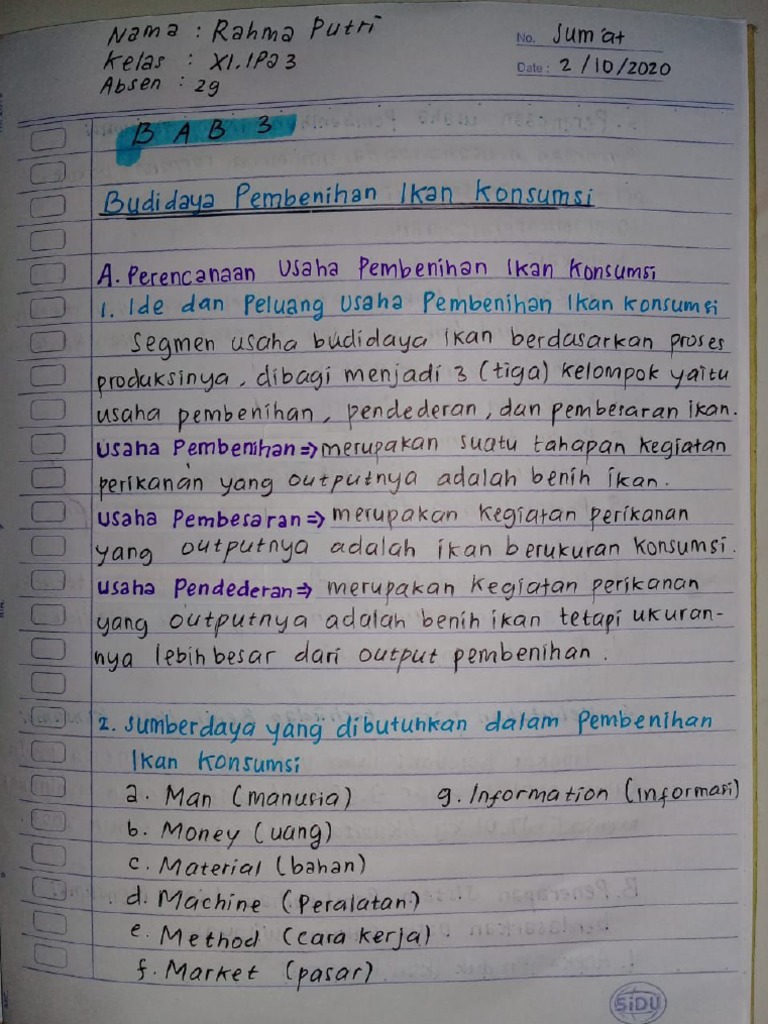 Nama : Rahma Putri
No. Jum'at
Kelas : XI.IPA 3
Date : 2/10/2020
Absen : 29
BAB 3
Budidaya Pembenihan Ikan Konsumsi
A. Perencanaan Usaha Pembenihan Ikan Konsumsi
1. Ide dan Peluang Usaha Pembenihan Ikan Konsumsi
Segmen usaha budidaya ikan berdasarkan proses
produksinya, dibagi menjadi 3 (tiga) kelompok yaitu
usaha pembenihan, pendederan, dan pembesaran ikan.
Usaha Pembenihan ⇒ merupakan suatu tahapan kegiatan
perikanan yang outputnya adalah benih ikan.
Usaha Pembesaran ⇒ merupakan kegiatan perikanan
yang outputnya adalah ikan berukuran konsumsi.
Usaha Pendederan ⇒ merupakan kegiatan perikanan
yang outputnya adalah benih ikan tetapi ukuran-
nya lebih besar dari output pembenihan.
2. Sumberdaya yang dibutuhkan dalam Pembenihan
Ikan Konsumsi
a. Man (manusia)
g. Information (informasi)
b. Money (uang)
c. Material (bahan)
d. Machine (Peralatan)
e. Method (cara kerja)
f. Market (pasar)
SiDU